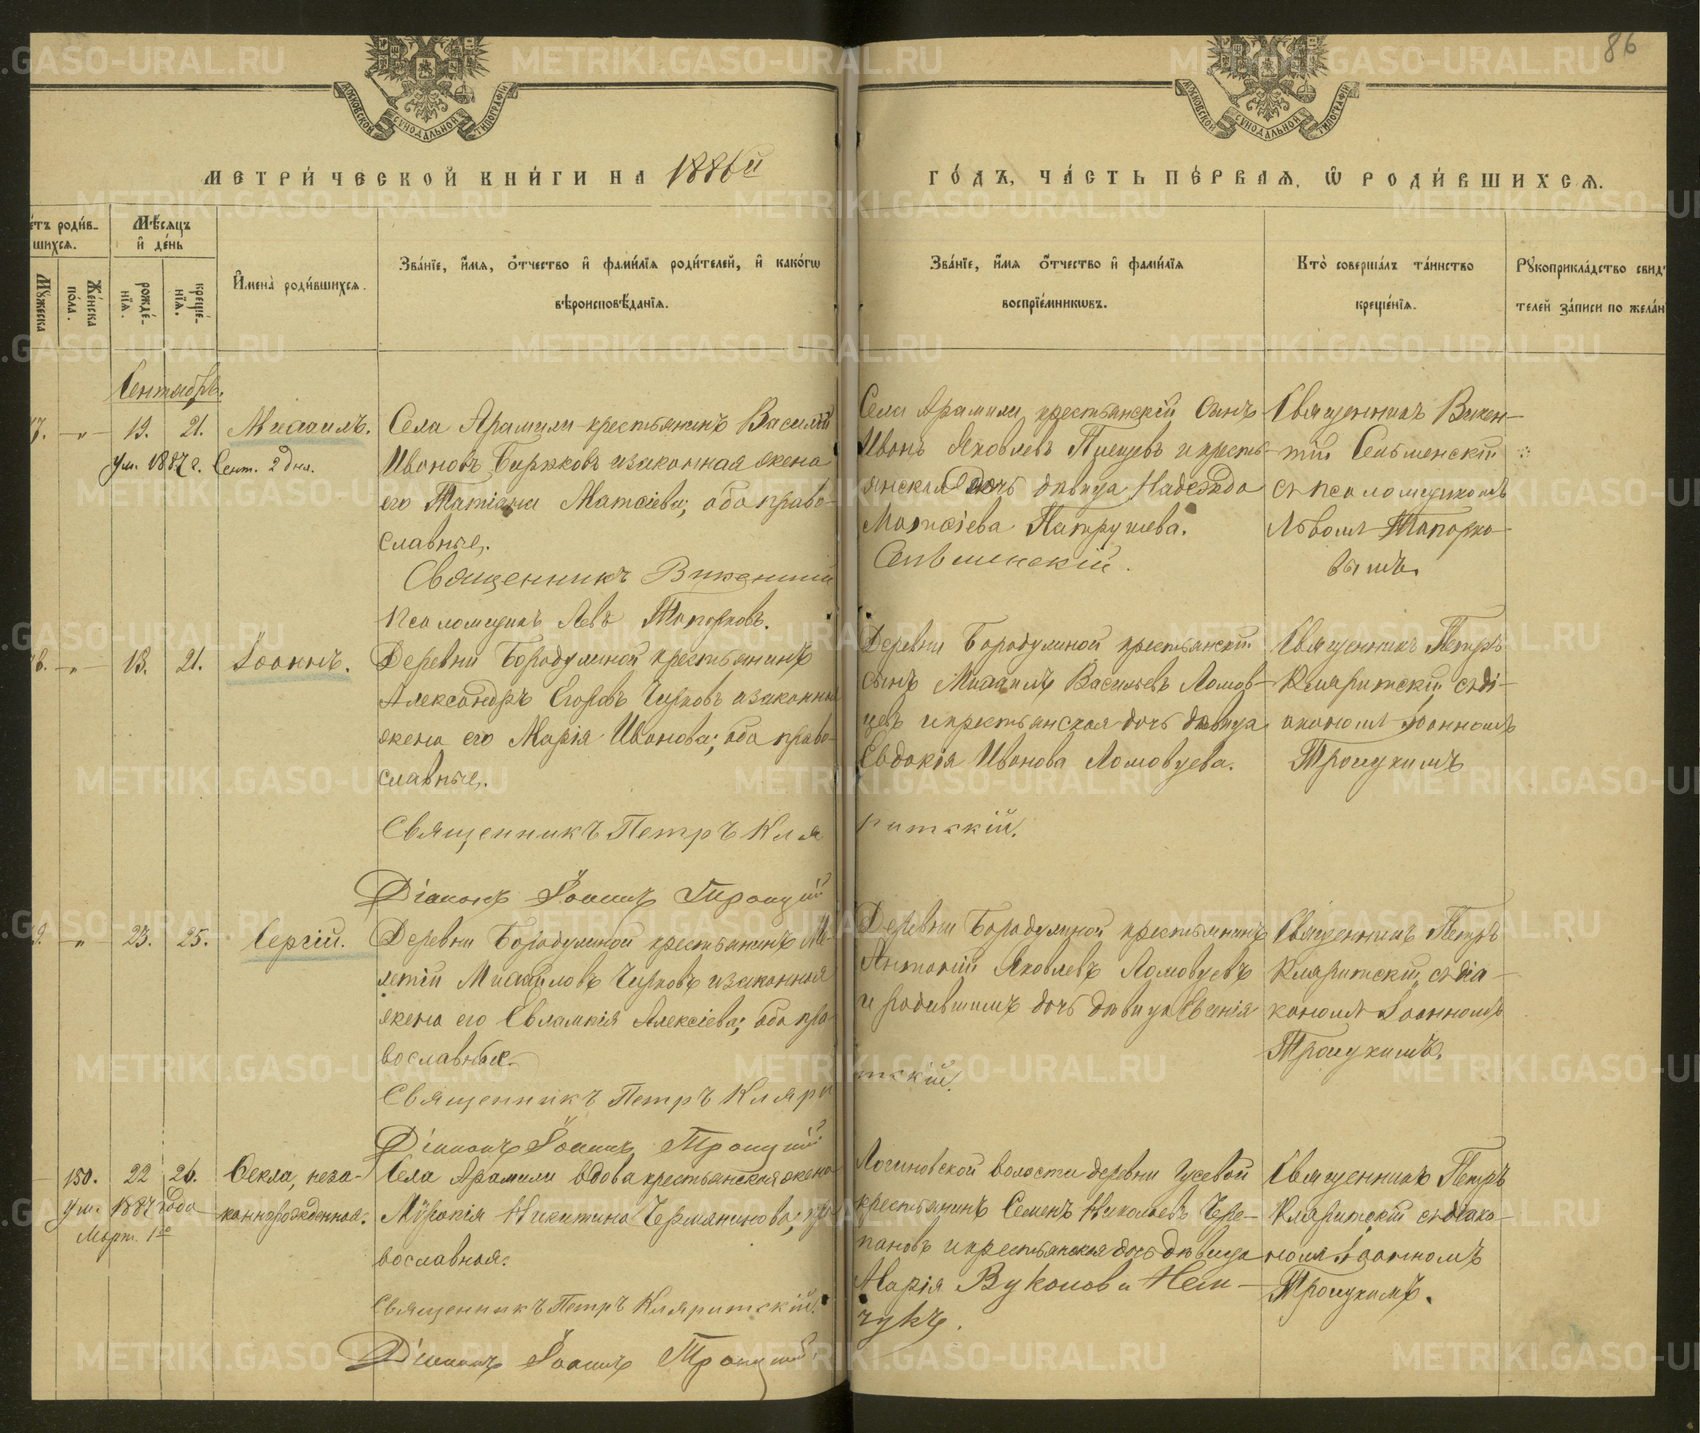 86
МОСКОВСКОЙ СѴНОДАЛЬНОЙ ТИПОГРАФІИ
МОСКОВСКОЙ СѴНОДАЛЬНОЙ ТИПОГРАФІИ
МЕТРИ́ЧЕСКОЙ КНИ́ГИ НА 1886й
ГО́ДЪ, ЧА́СТЬ ПЕ́РВАЯ, Ѡ РОДИ́ВШИХСЯ.
етъ роди́в-
шихся.
Мꙋжеска
Же́нска по́ла.
Мѣ́сяцъ и҆ де́нь
рожде́-
нїя.
креще́-
нїя.
И҆мена̀ роди́вшихся.
Зва́нїе, и҆́мя, ѻ҆́тчество и҆ фами́лїя роди́телей, и҆ како́гѡ
вѣроисповѣ́данїя.
Зва́нїе, и҆́мя ѻ҆́тчество и҆ фами́лїя
воспрїе́мникѡвъ.
Кто̀ соверша́лъ та́инство
креще́нїя.
Рꙋкоприкла́дство свид
телей за́писи по жела́н
Сентябрь.
7. — „ — 13. 21. Михаилъ.
Ум. 1887 г. Сент. 2 дня.
Села Арамили крестьянинъ Василій
Ивановъ и законная жена
его Татіана Матѳіева; оба право-
славные.
Священникъ Викентій
Псаломщикъ Левъ Топорковъ.
Села Арамили, крестьянскій сынъ
Иванъ Яковлевъ и кресть-
янская дочь дѣвица Надежда
Матѳіева Патрушева.
Сельменскій.
Священникъ Викен-
тій Сельменскій
съ псаломщикомъ
Львомъ Топорко-
вымъ.
8. — „ — 13. 21. Іоаннъ.
Деревни Бородулиной крестьянинъ
Александръ Егоровъ Чирковъ и законная
жена его Марія Иванова; оба право-
славные.
Священникъ Петръ Кля
Діаконъ Іоаннъ Троицкій
Деревни Бородулиной крестьянскій
сынъ Михаилъ Васильевъ Ломов-
цевъ и крестьянская дочь дѣвица
Евдокія Иванова Ломовцева.
ритскій.
Священникъ Петръ
Кляритскій съ ді-
акономъ Іоанномъ
Троицкимъ
9. „ — 23. 25. Сергій.
Деревни Бородулиной крестьянинъ Ме-
летій Михайловъ Чирковъ и законная
жена его Евлампія Алексіева; оба пра-
вославные.
Священникъ Петръ Кляри
Діаконъ Іоаннъ Троицкій
Деревни Бородулиной крестьянинъ
Антоній Яковлевъ Ломовцевъ
и дочь дѣвица Евгенія
тскій.
Священникъ Петръ
Кляритскій съ діа-
кономъ Іоанномъ
Троицкимъ.
150. 22 26. Ѳекла, неза-
Ум. 1887 года коннорожденная.
Март. 1го
Села Арамили вдова крестьянская жена
Никитина пра-
вославная.
Священникъ Петръ Кляритскій.
Діаконъ Іоаннъ Троицкій
Логиновской волости деревни Гусевой
крестьянинъ Семенъ Николаевъ Чере-
пановъ и крестьянская дочь дѣвица
Марія Вуколова Нем-
чукъ.
Священникъ Петръ
Кляритскій съ діако-
номъ Іоанномъ
Троицкимъ.